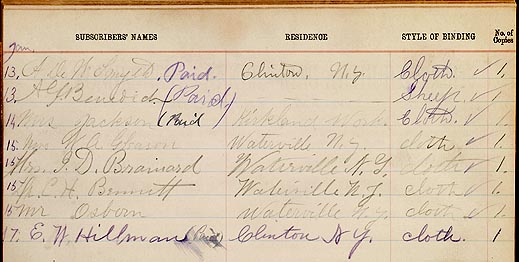 SUBSCRIBERS' NAMES RESIDENCE STYLE OF BINDING No. of Copies
Jan.
13. A. de W. Smyth, Paid. Clinton, N.Y. Cloth. ✓ 1,
13. Benedict (Paid) Sheep ✓ 1,
14. Mrs Jackson (Paid) Kirkland Cloth. ✓ 1,
15. Mrs A. Gleason Waterville N.Y. cloth ✓ 1,
15 Mrs. J. D. Brainard Waterville N.Y. cloth ✓ 1.
15 C. H. Bennett Waterville N.Y. cloth ✓ 1.
15 Mr Osborn Waterville N.Y. cloth ✓ 1.
17. E. W. Hillman (Paid) Clinton N.Y. cloth. 1